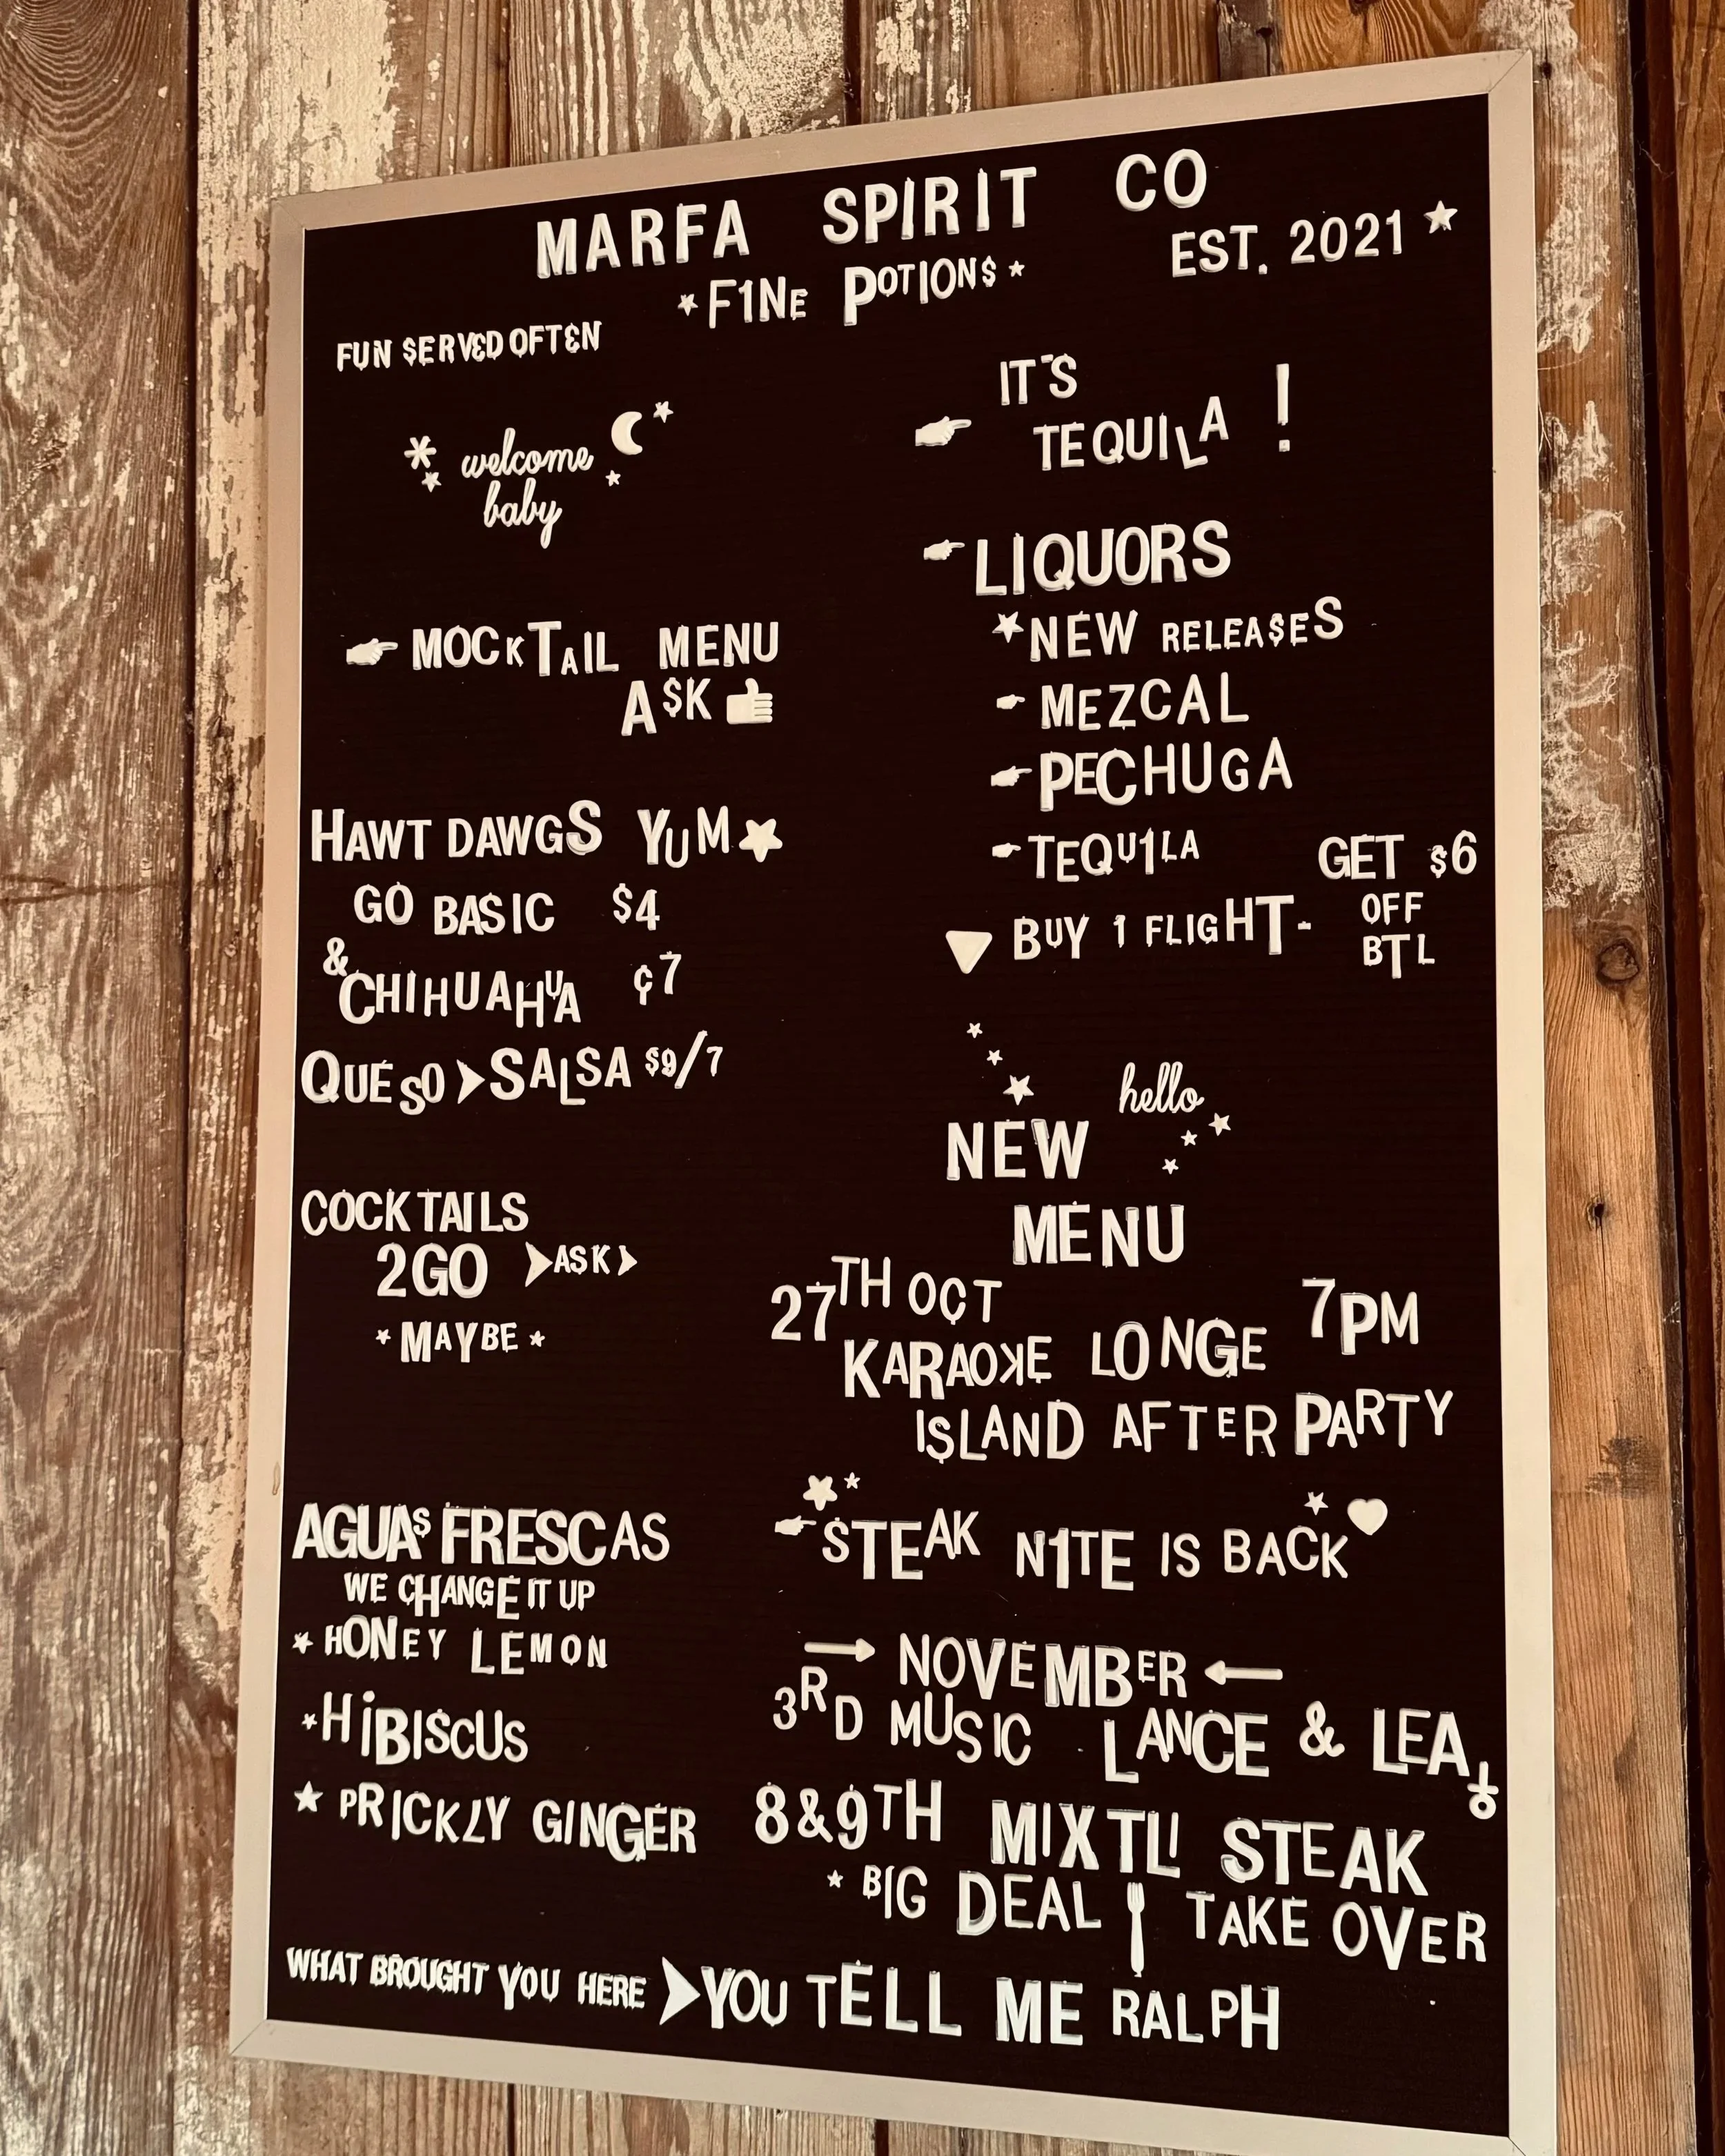 MARFA SPIRIT CO
EST. 2021
F1NE POTION$
FUN $ERVED OFTEN
welcome
baby
MOCKTAIL MENU
A$K
HAWT DAWGS YUM
GO BASIC $4
& CHIHUAHUA ¢7
QUESO > SALSA $9/7
COCKTAILS
2GO > ASK >
* MAYBE *
AGUAS FRESCAS
WE CHANGE IT UP
HONEY LEMON
HiBISCUS
PRICKLY GINGER
IT'S
TEQUILA !
LIQUORS
NEW RELEA$ES
MEZCAL
PECHUGA
TEQU1LA
BUY 1 FLIGHT-
GET $6
OFF
BTL
hello
NEW
MENU
27TH OCT 7PM
KARAOKE LONGE
ISLAND AFTER PARTY
STEAK N1TE IS BACK
NOVEMBER
3RD MUSIC LANCE & LEA
8&9TH MIXTLI STEAK
BIG DEAL TAKE OVER
WHAT BROUGHT YOU HERE > YOU TELL ME RALPH